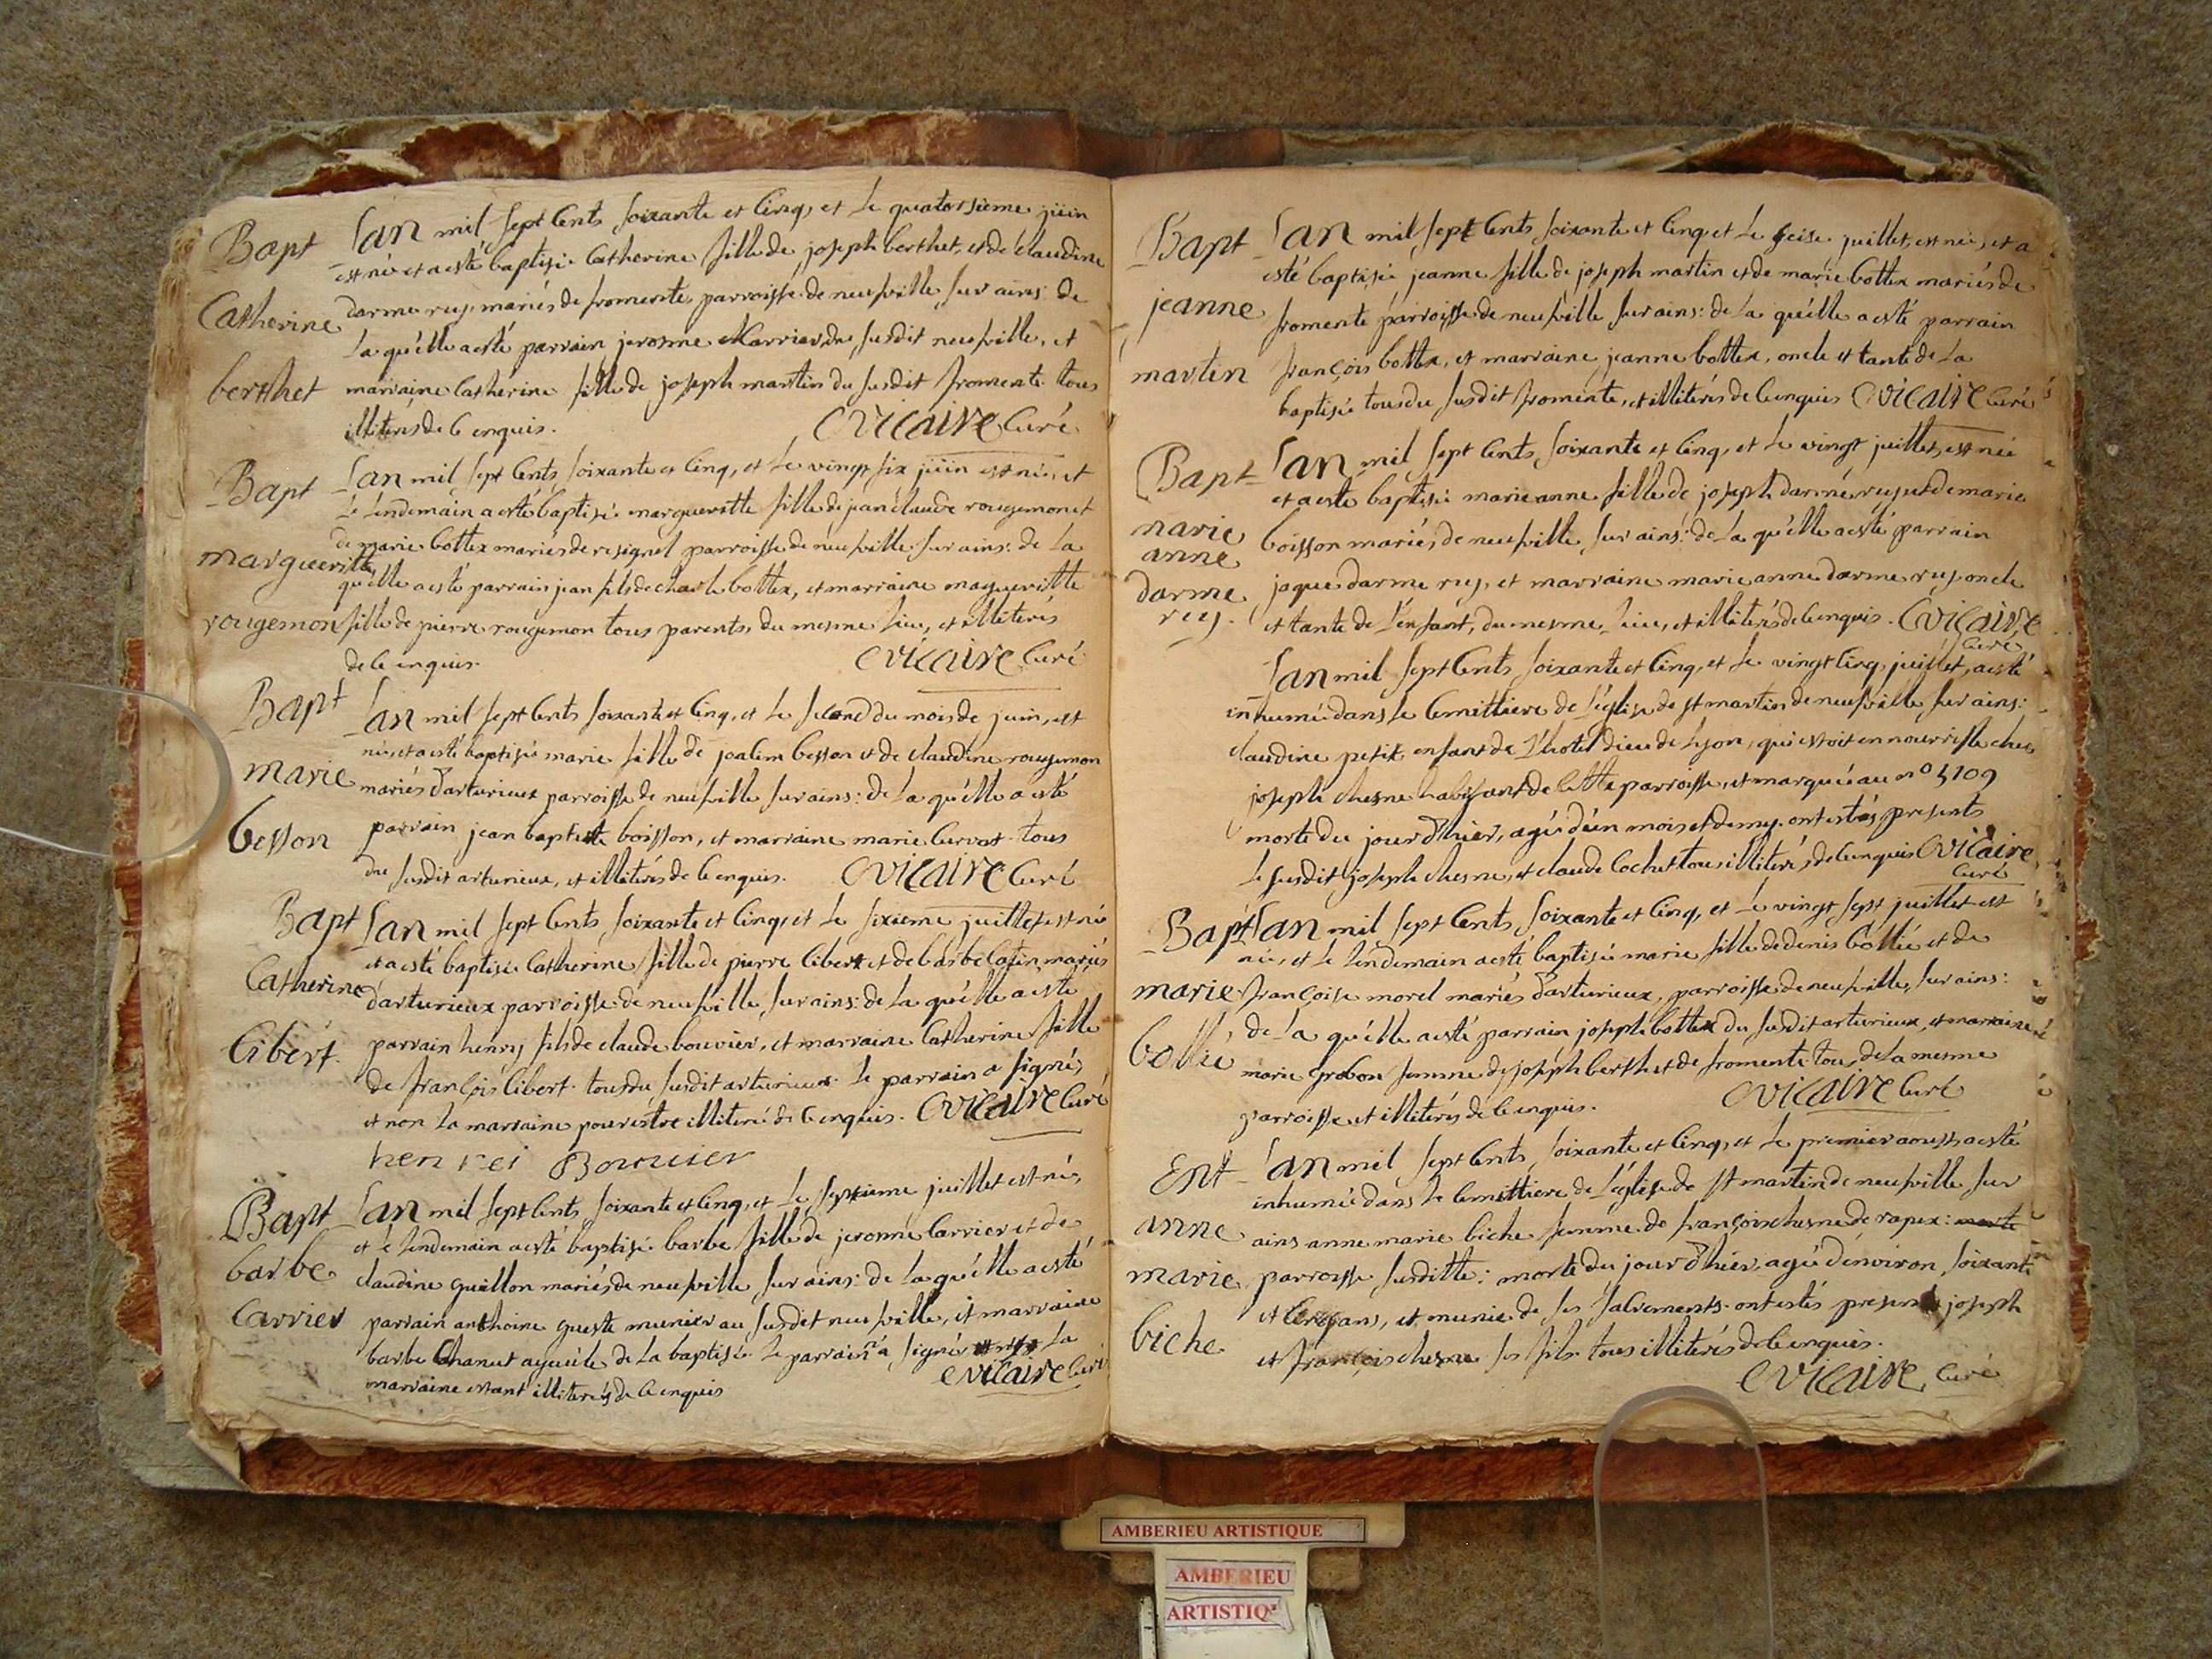 Bapt
Catherine
berthet
L'an mil sept Cents soixante et Cinq, et Le quatorsieme juin
est née et a esté baptisée Catherine fille de joseph berthet, et de claudine
darme rey, mariés de fromente parroisse de neufville sur ains: de
La qu'elle a esté parrain jerosme Carrier du susdit neufville, et
marraine Catherine fille de joseph martin du susdit fromente tous
illiterés de Ce enquis. Vicaire Curé
Bapt
margueritte
rougemon
L'an mil sept Cents soixante et Cinq, et Le vingt six juin est née, et
Le Lendemain a esté baptisée margueritte fille de jean claude rougemon et
de marie bottex mariés de resignel parroisse de neufville sur ains: de La
qu'elle a esté parrain jean fils de charle bottex, et marraine margueritte
fille de pierre rougemon tous parents, du mesme Lieu, et illiterés
de Ce enquis. Vicaire Curé
Bapt
marie
besson
L'an mil sept Cents soixante et Cinq, et Le second du mois de juin, est
née, et a esté baptisée marie fille de joalim besson et de claudine rougemon
mariés d'arturieux parroisse de neufville sur ains: de La qu'elle a esté
parrain jean baptiste boisson, et marraine marie Curvat tous
du susdit arturieux, et illiterés de Ce enquis. Vicaire Curé
Bapt
Catherine
Cibert
L'an mil sept Cents soixante et Cinq, et Le sixieme juillet est née
et a esté baptisée Catherine fille de pierre Cibert et de barbe Cotin mariés
d'arturieux parroisse de neufville sur ains: de La qu'elle a esté
parrain henry fils de claude bouvier, et marraine Catherine fille
de françois Cibert tous du susdit arturieux. Le parrain a signé,
et non La marraine pour estre illiterée de Ce enquis. Vicaire Curé
henrei Bouuier
Bapt
barbe
Carrier
L'an mil sept Cents soixante et Cinq, et Le septieme juillet est née,
et Le Lendemain a esté baptisée barbe fille de jerosme Carrier et de
claudine guillon mariés de neufville sur ains: de La qu'elle a esté
parrain anthoine queste munier au susdit neufville, et marraine
barbe Chanut ayeule de La baptisée Le parrain a signé La
marraine estant illiterés de Ce enquis Vicaire Curé
Bapt
jeanne
martin
L'an mil sept Cents soixante et Cinq et Le seise juillet, est née, et a
esté baptisée jeanne fille de joseph martin et de marie bottex mariés de
fromente parroisse de neufville sur ains: de La qu'elle a esté parrain
françois bottex, et marraine jeanne bottex, oncle et tante de La
baptisée tous du susdit fromente, et illiterés de Ce enquis Vicaire Curé
Bapt
marie
anne
darme
rey.
L'an mil sept Cents soixante et Cinq, et Le vingt juillet, est née
et a esté baptisée marie anne fille de joseph darme rey, et de marie
boisson mariés de neufville sur ains: de La qu'elle a esté parrain
jaque darme rey, et marraine marie anne darme rey oncle
et tante de L'enfant, du mesme Lieu, et illiterés de Ce enquis. Vicaire
Curé
L'an mil sept Cents soixante et Cinq, et Le vingt Cinq juillet, a esté
inhumée dans Le Cemittiere de L'eglise de st martin de neufville sur ains:
claudine petit enfant de L'hotel dieu de Lyon, qui estoit en nourrisse ches
joseph chesne habitant de Cette parroisse, et marquée au n° 5109
morte du jour d'hier, agée d'un mois et demy. ont estés presents
Le susdit joseph chesne, et claude Cochet tous illiterés de Ce enquis Vicaire
Curé
Bapt
marie
bollié
L'an mil sept Cents soixante et Cinq, et Le vingt sept juillet est
née, et Le Lendemain a esté baptisée marie fille de denis bollié et de
françoise morel mariés d'arturieux, parroisse de neufville sur ains:
de La qu'elle a esté parrain joseph bottex du susdit arturieux, et marraine
marie grobon femme de joseph berthet de fromente tous de La mesme
parroisse et illiterés de Ce enquis. Vicaire Curé
Ent
anne
marie
biche
L'an mil sept Cents soixante et Cinq, et Le premier aoust, a esté
inhumée dans Le Cemittiere de L'eglise de st martin de neufville sur
ains anne marie biche femme de françois chesne de rapex: morte
parroisse susditte: morte du jour d'hier, agée d'environ soixante
et Cinq ans, et munie de ses sacrements. ont estés presents joseph
et françois chesne ses fils. tous illiterés de Ce enquis.
Vicaire Curé
AMBERIEU ARTISTIQUE
AMBERIEU
ARTISTIQ